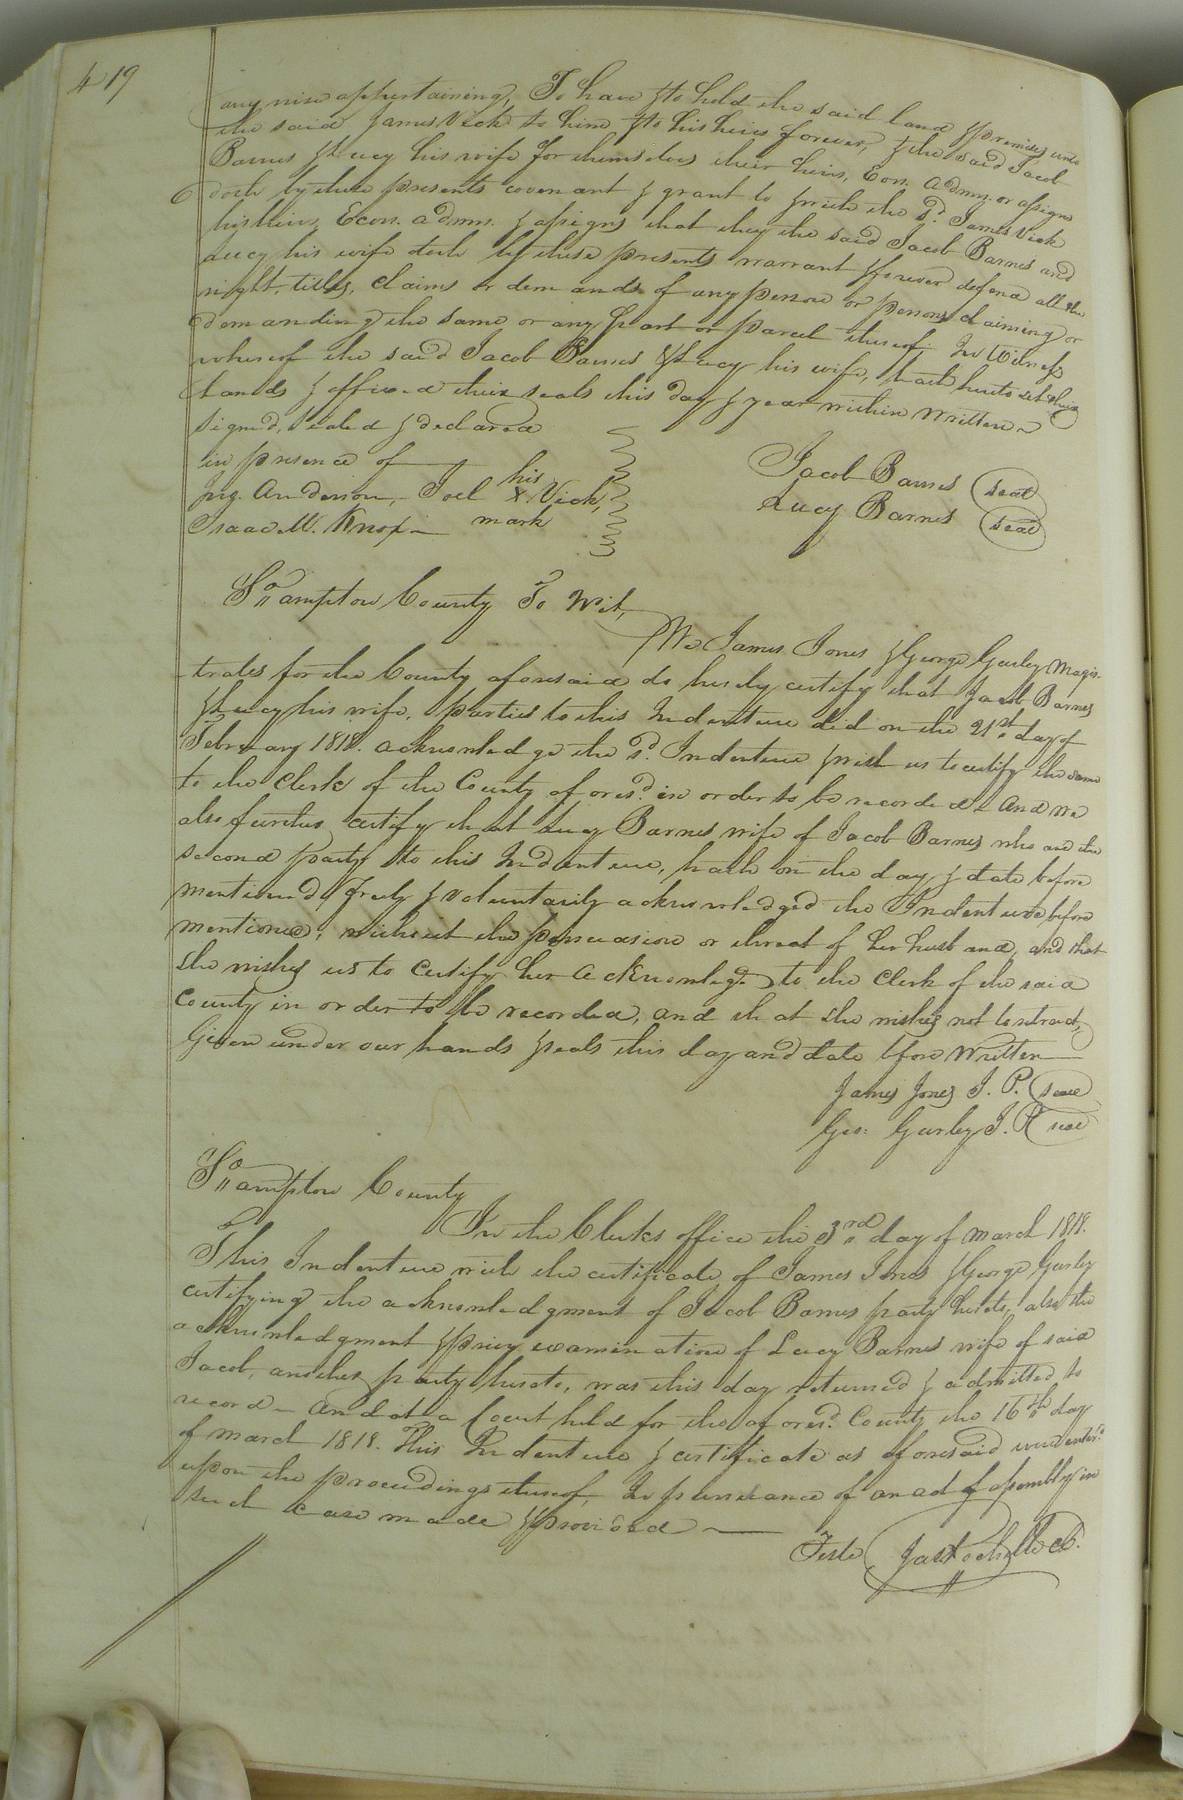 419
any wise appertaining, To have & to hold the said land & premises unto
the said James Vick to him & to his heirs forever, & the said Jacob
Barnes & Lucy his wife for themselves their heirs, Exrs. Admrs. or assigns
doth by these presents covenant & grant to & with the sd. James Vick
his heirs, Exors. admrs. & assigns that they the said Jacob Barnes and
Lucy his wife doth by these presents warrant & forever defend all the
right, titles, claims or demands of any person or persons claiming or
demanding the same or any part or parcel thereof. In Witness
whereof the said Jacob Barnes & Lucy his wife, hath hereto set their
hands & affixed their seals this day & year within written
Signed, sealed & declared
in presence of
Jng. Anderson, Joel his X mark Vick,
Isaac W. Knox
Jacob Barnes (seal)
Lucy Barnes (seal)
So,,ampton County To Wit,
We James Jones & George Gurley Magis-
trates for the County aforesaid do hereby certify that Jacob Barnes
& Lucy his wife, parties to this Indenture did on the 21st day of
February 1818. acknowledge the sd. Indenture & wish us to certify the same
to the Clerk of the County aforesd. in order to be recorded - And we
also further certify that Lucy Barnes wife of Jacob Barnes who are the
second party to this Indenture, hath on the day & date before
mentioned, freely & voluntarily acknowledged the Indenture before
mentioned, without the persuasion or threat of her husband, and that
she wishes us to certify her acknowledgt. to the Clerk of the said
County in order to be recorded, and that she wishes not to retract,
Given under our hands & seals this day and date before written
James Jones J. P. (seal)
Geo: Gurley J. P. (seal)
So,,ampton County
In the Clerks office the 3rd day of March 1818.
This Indenture with the certificate of James Jones & George Gurley
certifying the acknowledgment of Jacob Barnes party hereto, also the
acknowledgment & privy examination of Lucy Barnes wife of said
Jacob, another party hereto, was this day returned & admitted to
record - And at a Court held for the aforesd. County the 16th day
of March 1818. This Indenture & certificate as aforesaid were enterd.
upon the proceedings thereof, In pursuance of an act of assembly in
such case made & provided
Teste Jas Rochelle Ck.